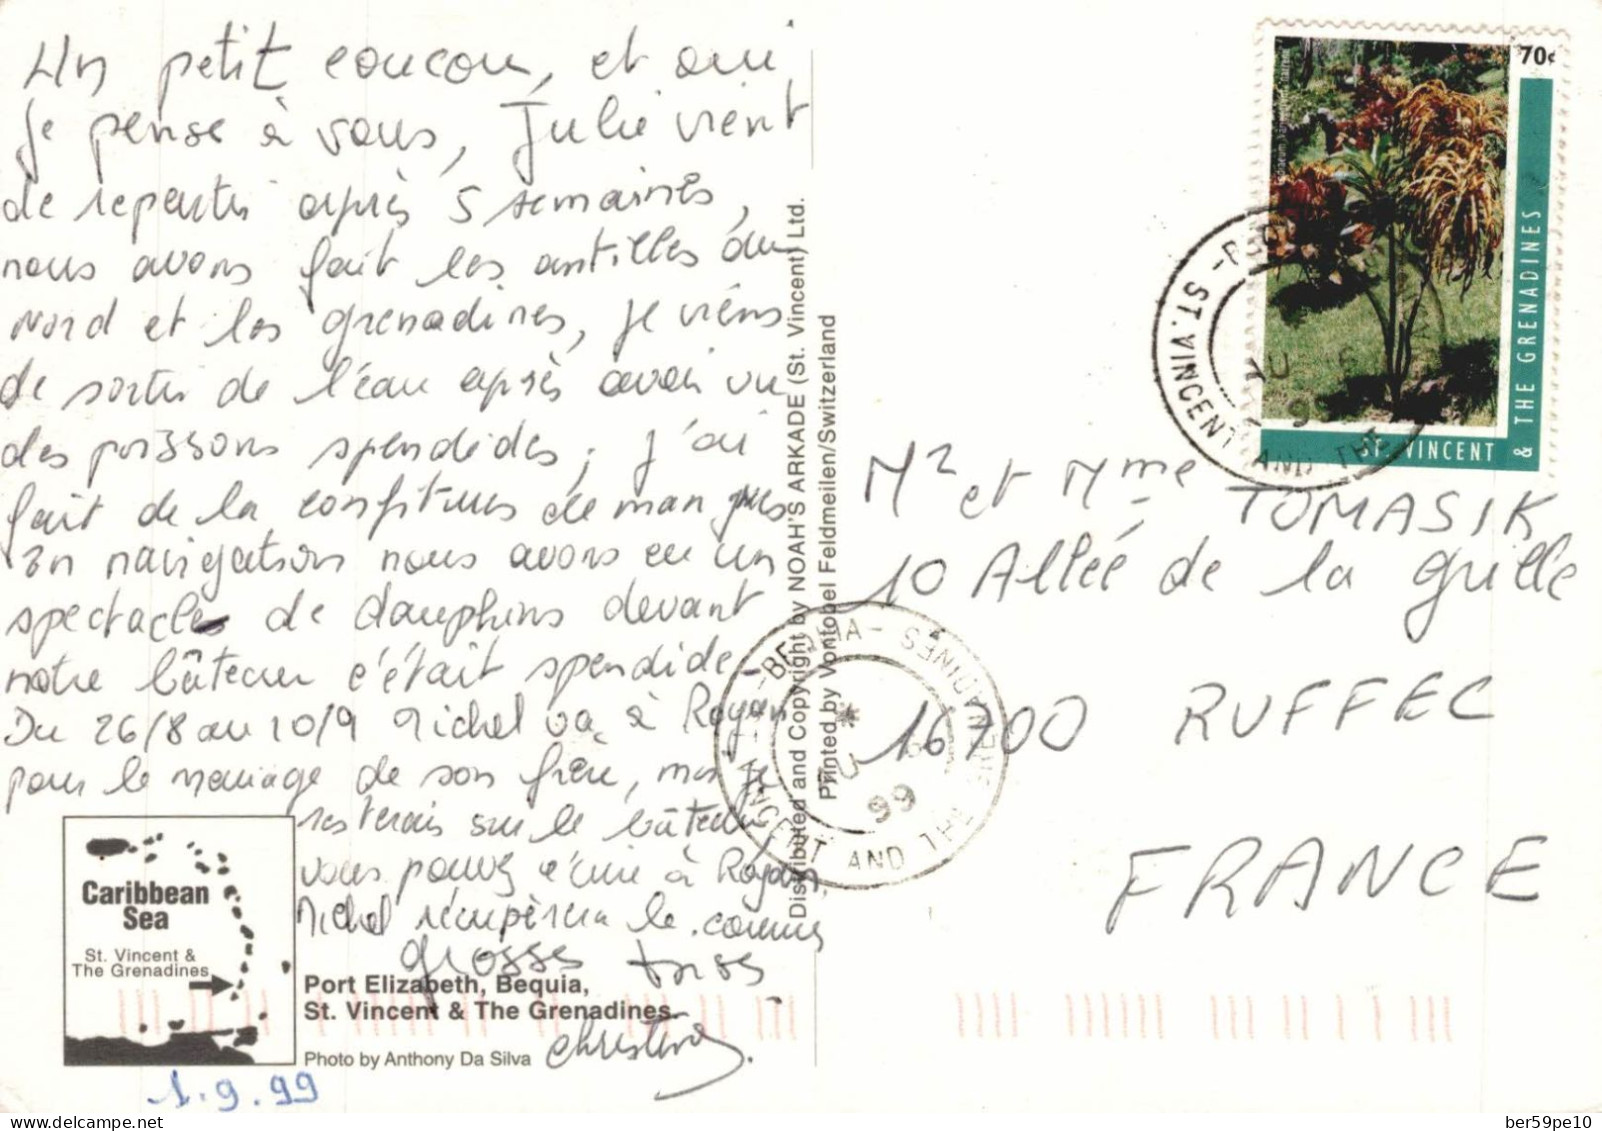 Un petit coucou, et oui
je pense à vous, Julie vient
de repartir après 5 semaines,
nous avons fait les antilles du
Nord et les grenadines, je viens
de sortir de l'eau après avoir vu
des poissons spendides, j'ai
fait de la confitures de mangues
En navigation nous avons eu un
spectacles de dauphins devant
notre bâteau c'était spendide-
Du 26/8 au 10/9 Michel va à Royan
pour le mariage de son frère, moi je
resterais sur le bâteau
vous pouvez écrire à Royan,
Michel récupèrera le courrier
grosses bises
Christine
1.9.99
Caribbean
Sea
St. Vincent &
The Grenadines
Port Elizabeth, Bequia,
St. Vincent & The Grenadines
Photo by Anthony Da Silva
Distributed and Copyright by NOAH'S ARKADE (St. Vincent) Ltd.
Printed by Vontobel Feldmeilen/Switzerland
70¢
ST. VINCENT & THE GRENADINES
ST. VINCENT AND THE
BEQUIA - ST. VINCENT AND THE GRENADINES
99
Mr et Mme TOMASIK
10 Allée de la grille
16700 RUFFEC
FRANCE
delcampe.net
ber59pe10